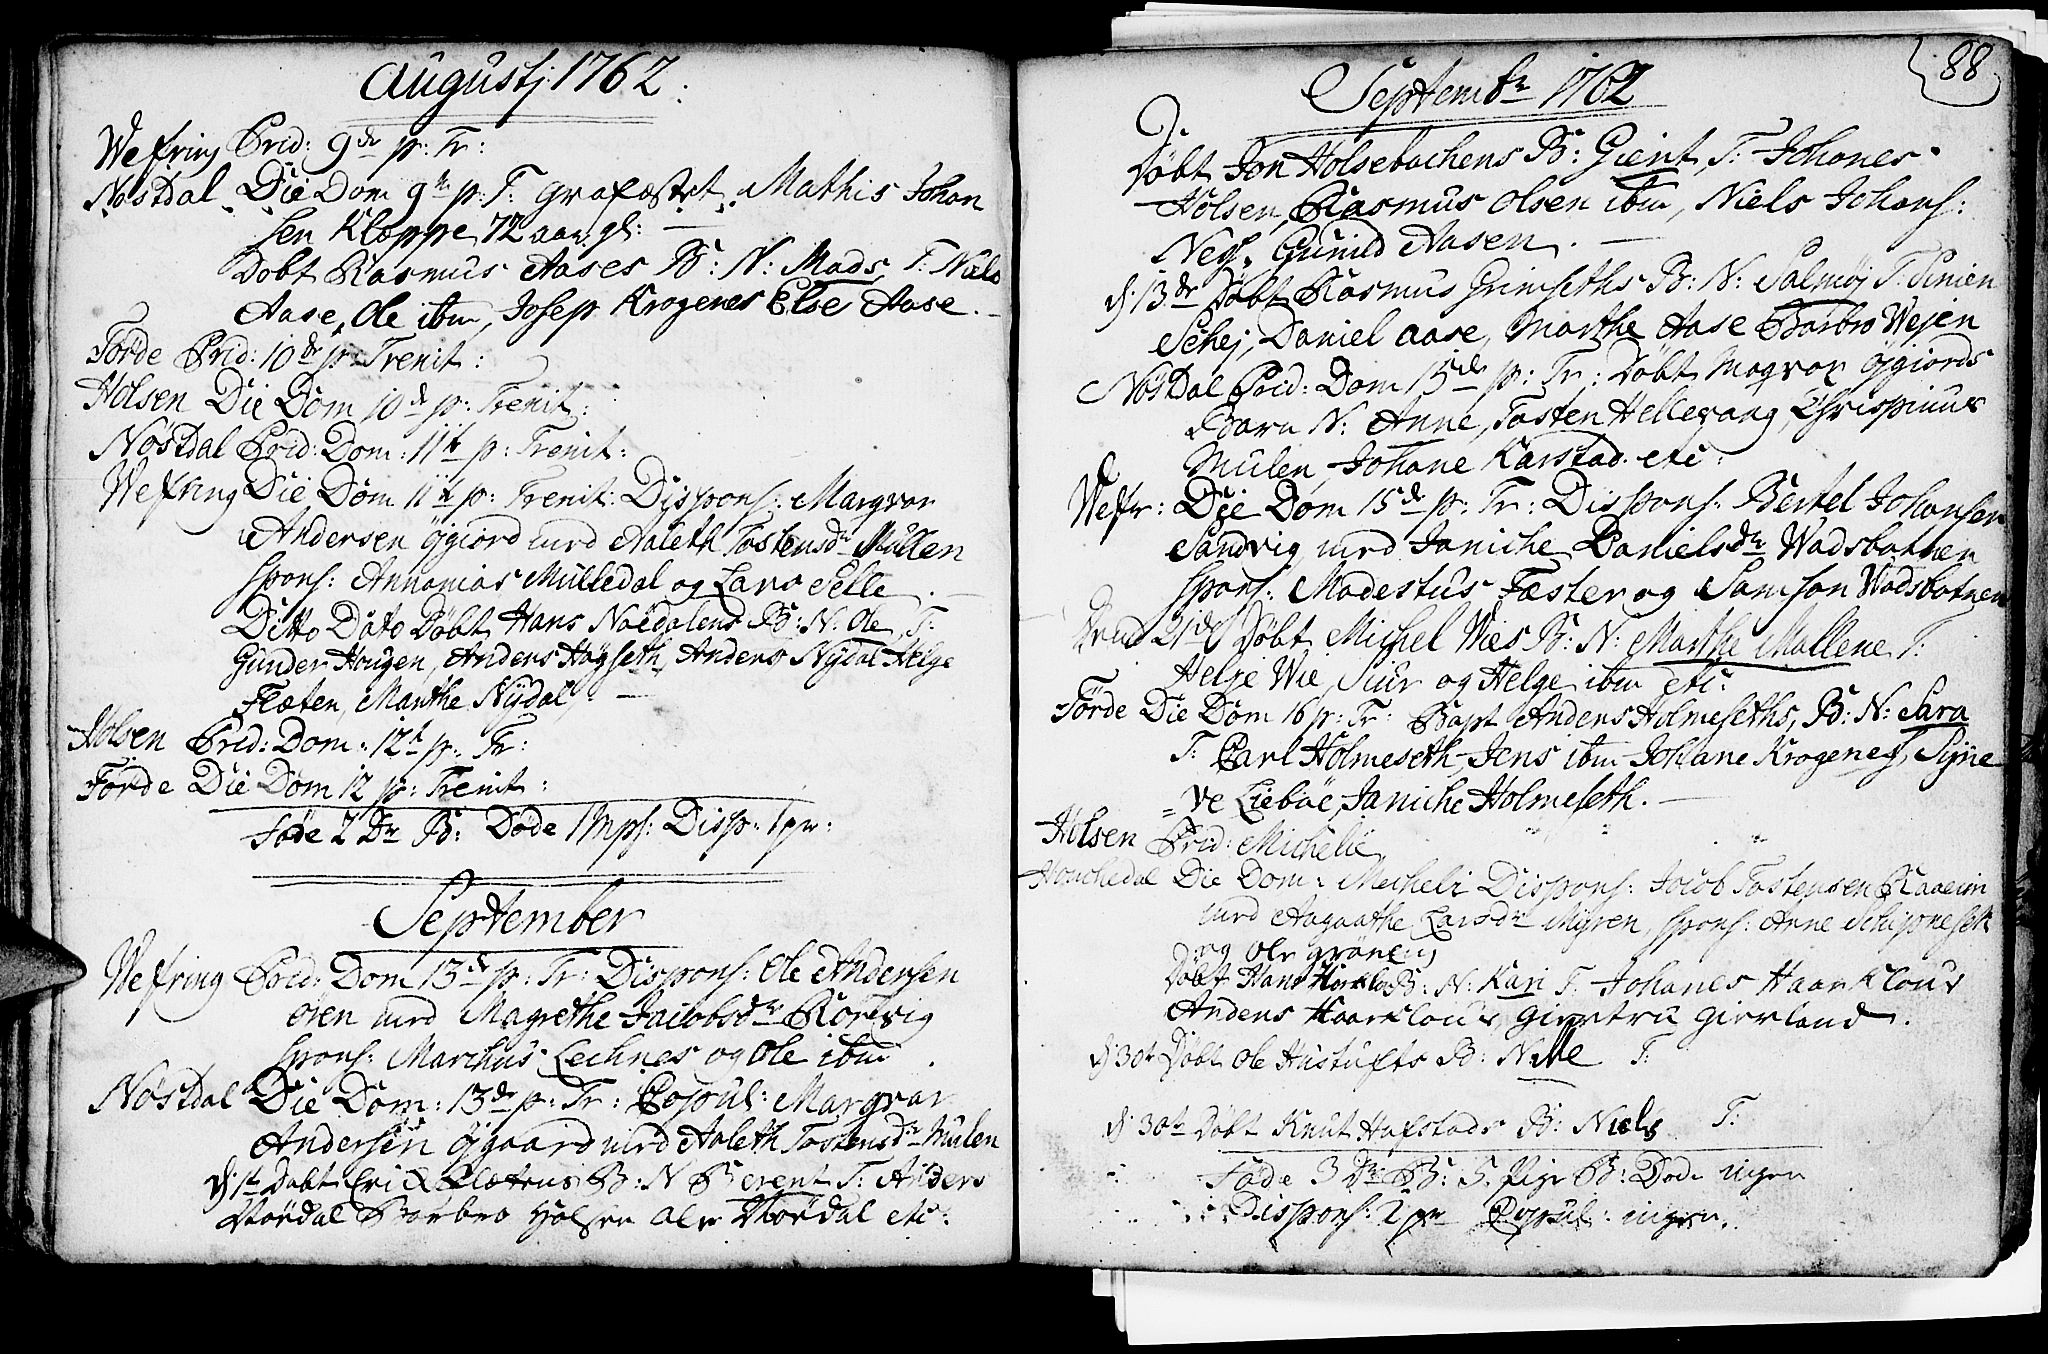 Augustj 1762:
Wefring Prid: 9de p: Tr:
Nøstdal Die Dom 9de p: T: grafæstet Mathis Johan
sen Kleppe 72 aar gl: —
Døbt Rasmus Aases B: N: Mads, T: Niels
Aase, Ole ibm, Josep Krogenes Else Aase. —
Førde Prid: 10de p: Trenit:
Holsen Die Dom 10de p: Trenit:
Nøstdal Prid: Dom: 11te p: Trenit:
Wefring Die Dom 11te p: Trenit: Dispons: Margvar
Andersen Øygiord med Aaleth Tostensdr Mullen
spons: Annanias Mulledal og Lars Selle. —
Ditto Dato Døbt Hans Naidalens B: N: Ole, T:
Gunder Hougen, Anders Høgseth, Anders Nydal Helge
Flæten, Marthe Nydal, —
Holsen Prid: Dom: 12te p: Tr:
Førde Die Dom 12 p: Trenit:
Føde 2 Dr B: Døde 1 Mps: Disp: 1 pr:
September
Wefring Prid: Dom 13de p: Tr: Dispons: Ole Andersen
Øren med Magrethe Jacobsdr Rørvig
spons: Marchus Lechnes og Ole ibm.
Nøstdal Die Dom: 13de p: Tr: Copul: Margvar
Andersen Øygaard med Aaleth Tostensdr Mulen
d: 1te Døbt Eric Flætens B: N Berent T: Anders
Størdal Barbro Holsen Ole Størdal etc:
88
Septembr 1762
Døbt Jon Holsebachens B: Gient, T: Johanes
Holsen, Rasmus Olsen ibm, Niels Johans:
Neg. Gunild Aasen. —
d: 13de Døbt Rasmus Grimseths B: N: Salmøj T: Sinien
Schej, Daniel Aase, Marthe Aase Barbro Wejen
Nøstdal Prid: Dom 15de p: Tr: Døbt Magvar Øygiords
Barn N: Anne, Tosten Hellevaag, Chrispinus
Mulen, Johane Karstad etc:
Wefr: Die Dom 15de p: Tr: Dispons: Bertel Johansen
Sandvig med Janiche Danielsdr Wadsbotnen
spons: Modestus Fæster og Samson Wadsbotnen
21de Døbt Michel Wies B: N: Marthe Mallene T:
Helje Wie, Siur og Helge ibm etc:
Førde Die Dom 16 p: Tr: Bapt Anders Holmeseths, B: N: Sara
T: Carl Holmeseth, Jens ibm Johane Krogenes, Syne
=ve Liebøe, Janiche Holmeseth. —
Holsen Prid: Michelie
Houchedal Die Dom: Micheli Dispons: Jocob Tostensen Raaeim
med Aagaathe Larsdr Myren, spons: Arne Schipneseth
og Ole Grønen
Døbt Hans B: N: Kari T: Johanes Haarklous
Anders Haarklous, Giertru Gierland.
d: 30te Døbt Ole Hustufts B: T:
d: 30te Døbt Knut Hafstads B: Niels T:
Føde 3 Dr B: 5 Pige B: Døde ingen
Dispons: 2 pr Copul: ingen.